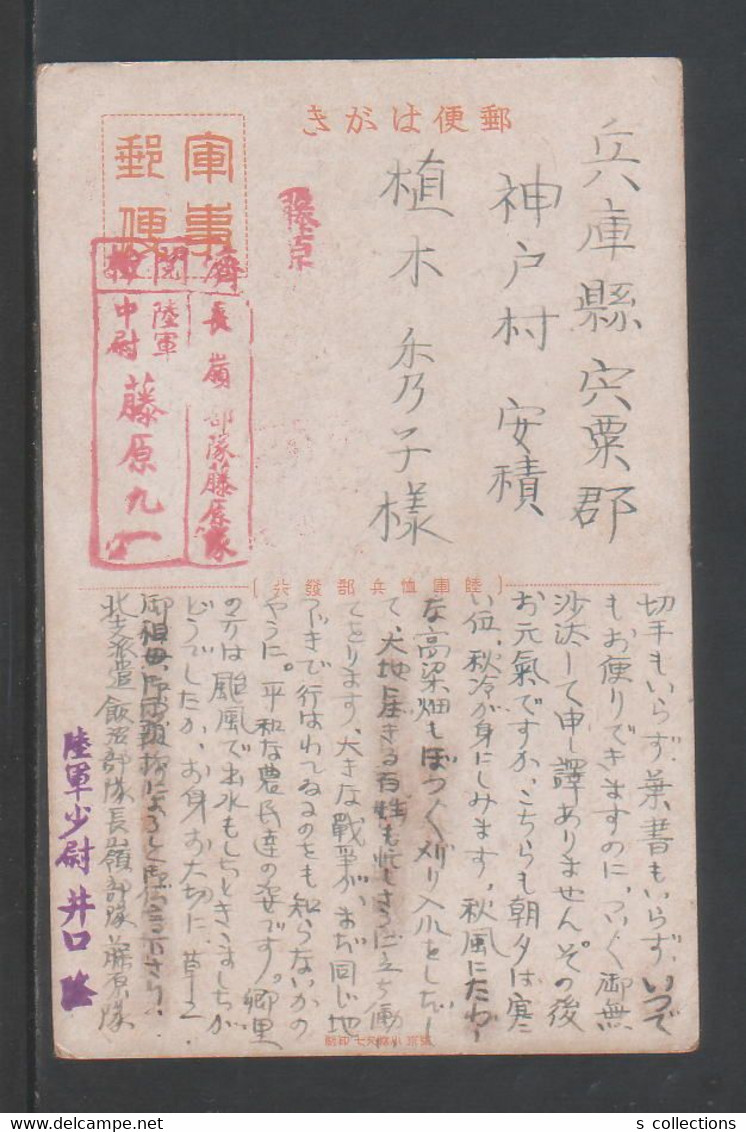 郵便はがき
軍事
郵便
兵庫縣宍粟郡
神戸村 安積
植木 秀子様
藤原
検閲濟
長嶺部隊藤原隊
陸軍
中尉
藤原九一
陸軍恤兵部發行
切手もいらず、葉書もいらず、いつで
もお便りできますのに、つい〱御無
沙汰して申し譯ありません。その後
お元氣ですか、こちらも朝夕は寒
い位、秋冷が身にしみます、秋風にたわゝ
な高梁畑もぼつ〱刈り入れをしだし
て、大地に生きる百姓も忙しさうに立ち働
いてをります、大きな戰爭が、まだ同じ地
つゞきで行はれてゐるのをも知らないかの
やうに。平和な農民達の姿です。郷里
の方は颱風で出水もしたときゝましたが
どうでしたか、お身お大切に、
御祖母によろしく下さい、
北支派遣 飯沼部隊長嶺部隊 藤原隊
陸軍少尉 井口